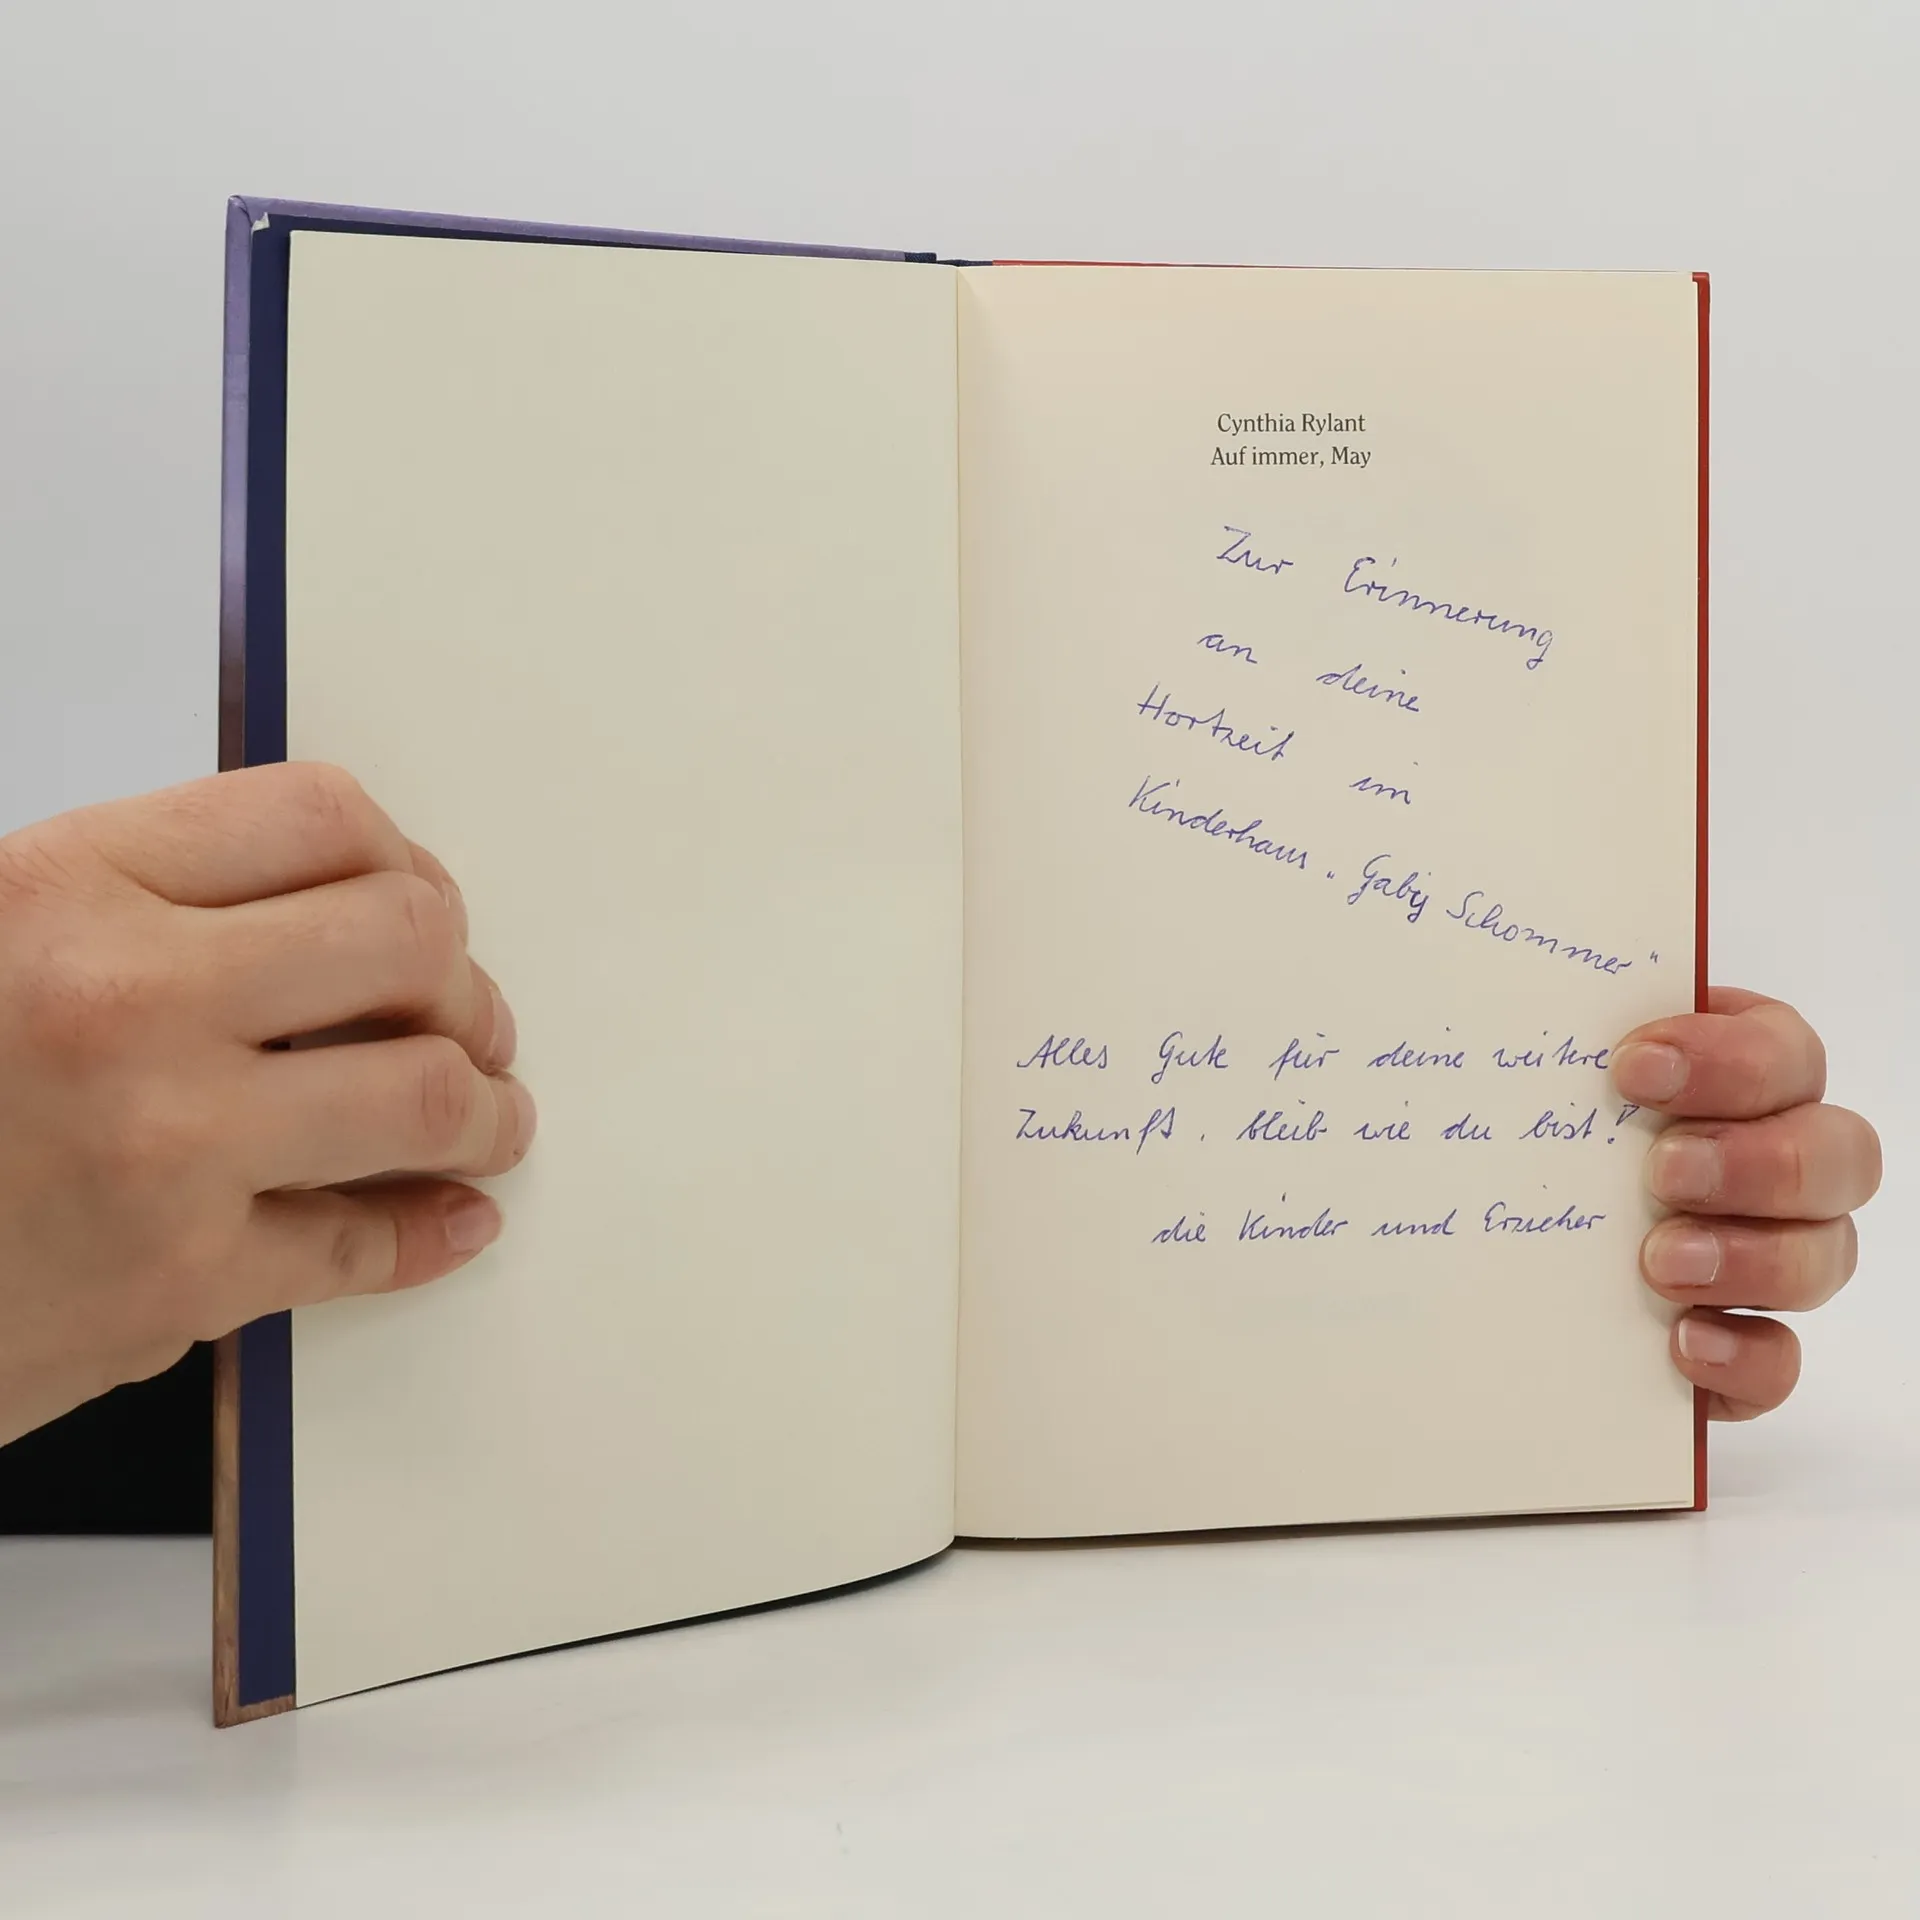 Cynthia Rylant
Auf immer, May
Zur Erinnerung
an deine
Hortzeit im
Kinderhaus "Gaby Schommer"
Alles Gute für deine weitere
Zukunft, bleib wie du bist!
die Kinder und Erzieher